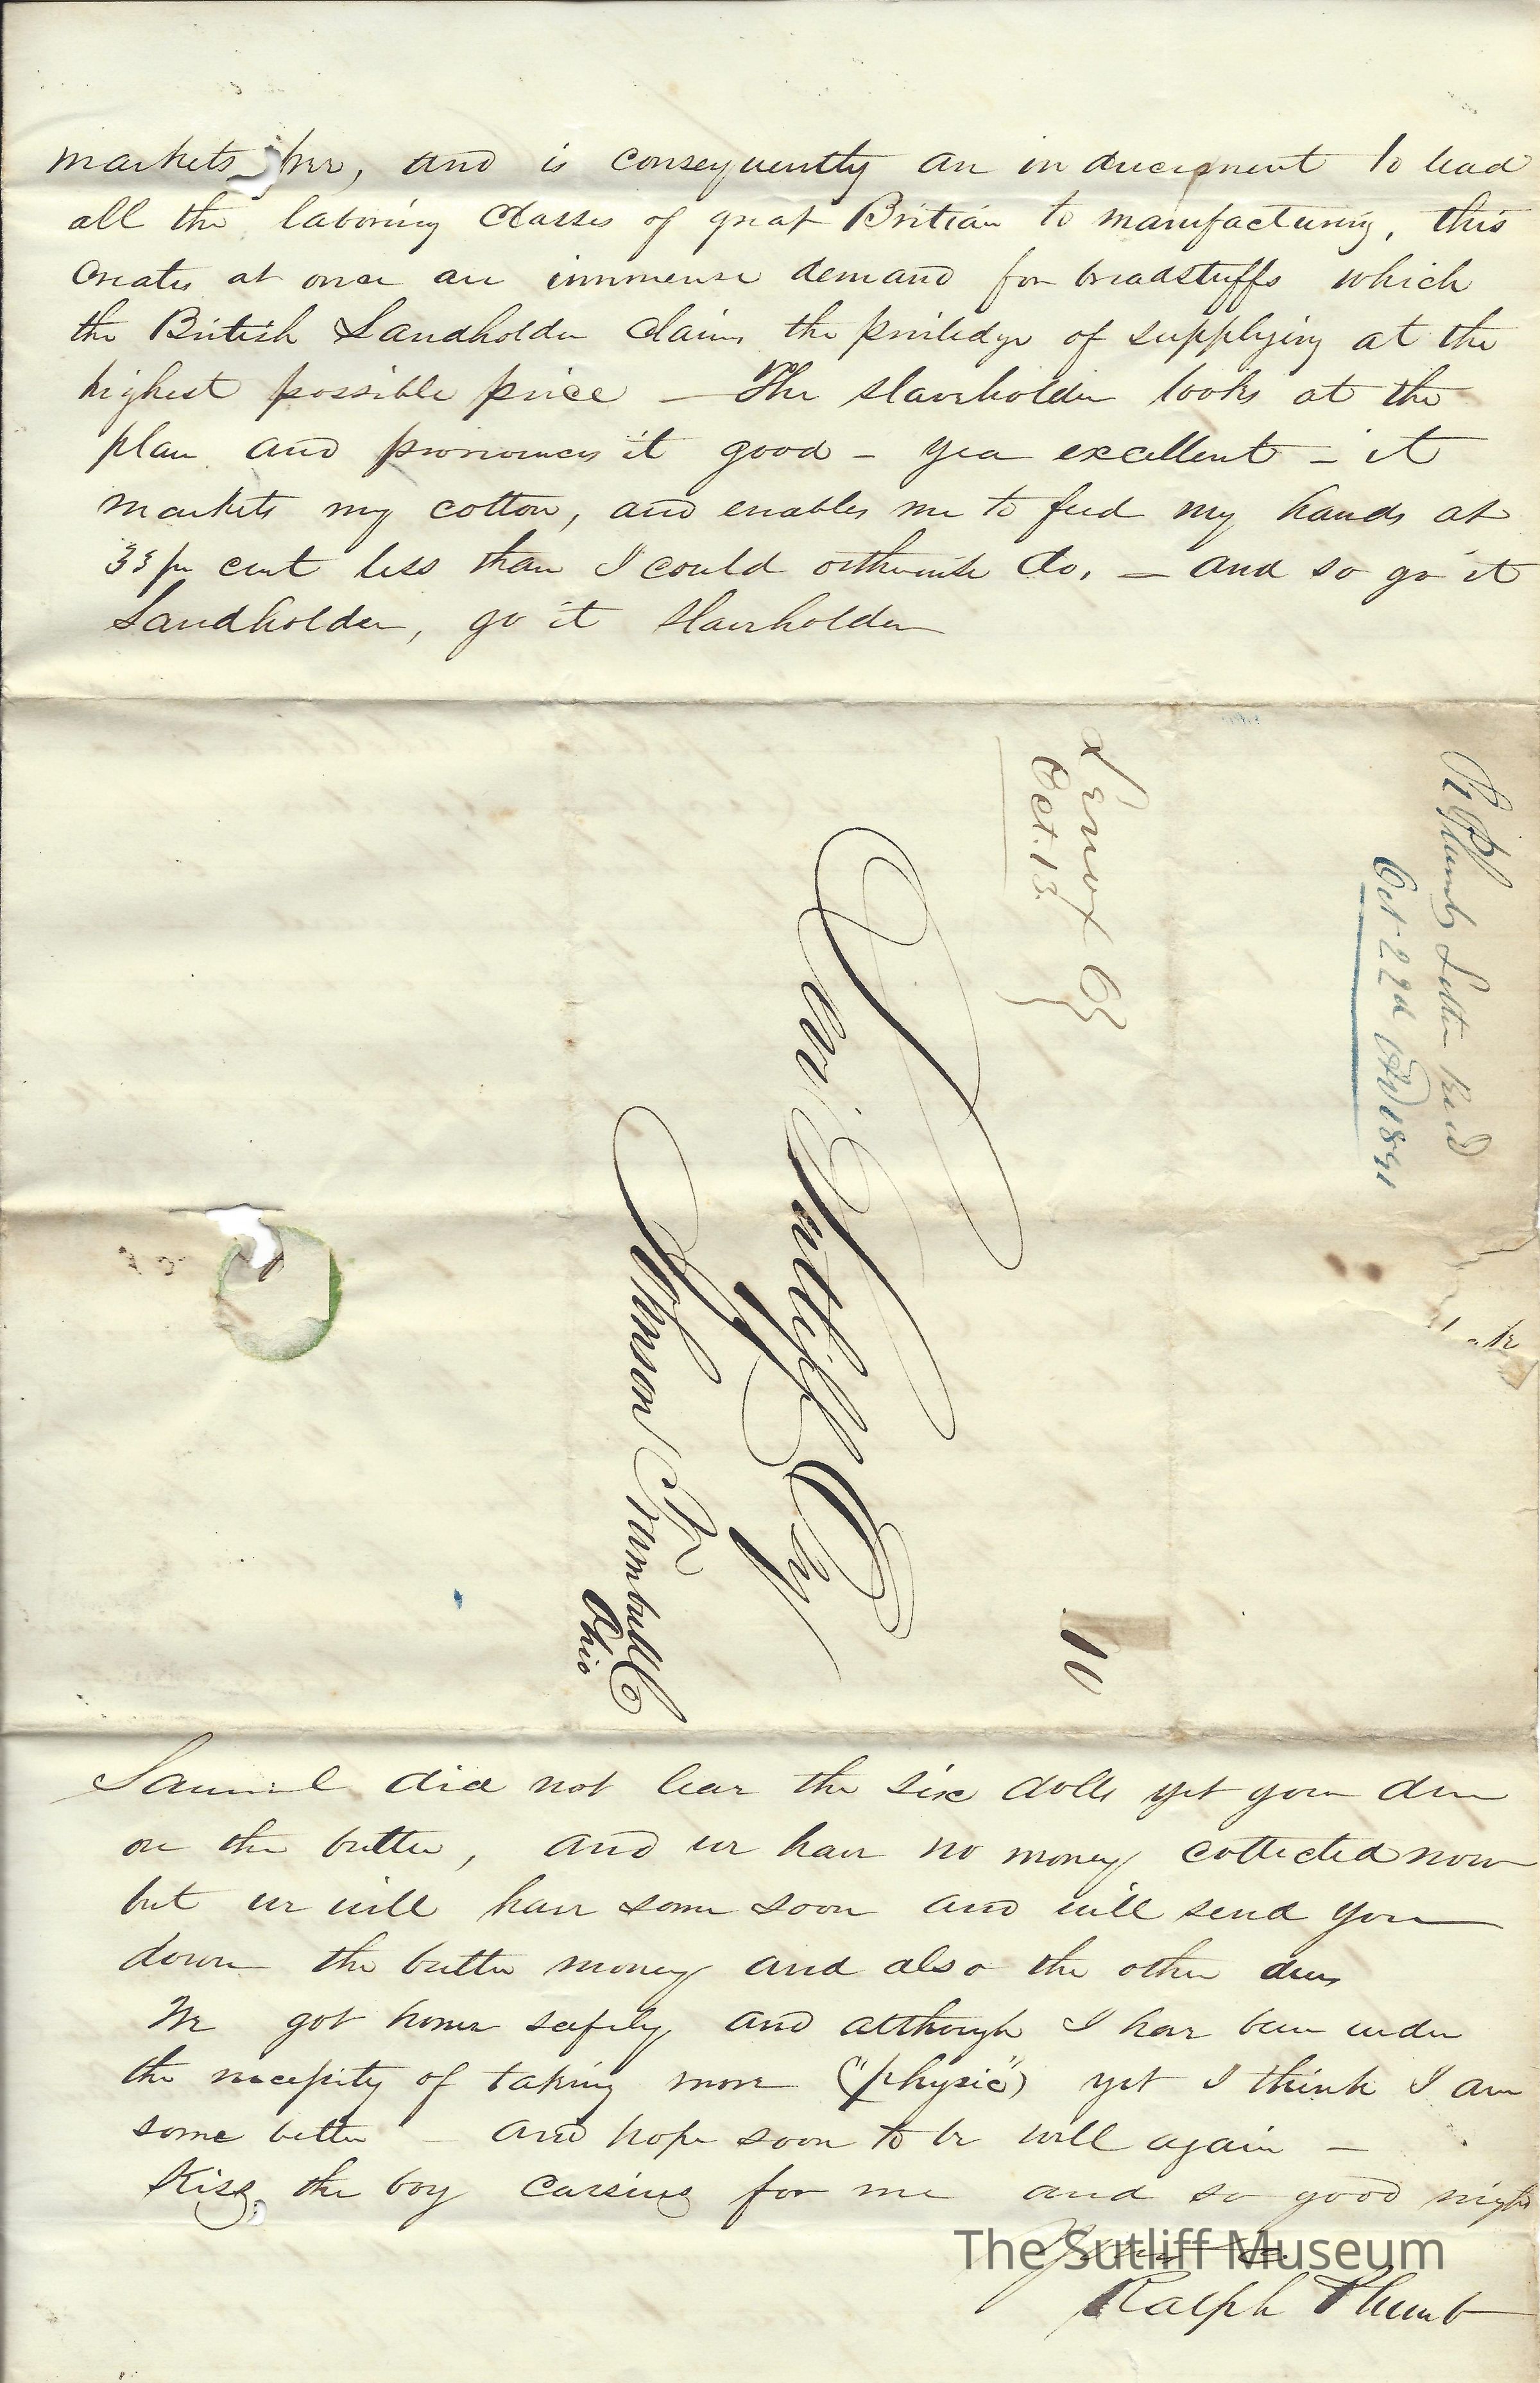 markets free, and is consequently an inducement to lead
all the laboring Classes of great Britian to manufacturing, this
Creates at once an immense demand for breadstuffs which
the British Landholder Claims the priviledge of supplying at the
highest possible price — The slaveholder looks at the
plan and pronounces it good - yea excellent - it
markets my cotton, and enables me to feed my hands at
33 pr cent less than I could otherwise do, — and so go it
Landholder, go it slaveholder
R Plumb Letter Recd
Oct 22d AD 1841
Lenox O
Oct. 13.
10
Levi Sutliff Esq
Johnson Trumbull Co
Ohio
Samuel did not leave the six dolls yet your due
on the butter, and we have no money collected now
but we will have some soon and will send you
down the butter money and also the other dues
We got home safely and although I have been under
the necessity of taking more ("physic") yet I think I am
some better - and hope soon to be well again -
Kiss the boy Cassius for me and so good night
Yours &c.
Ralph Plumb
The Sutliff Museum